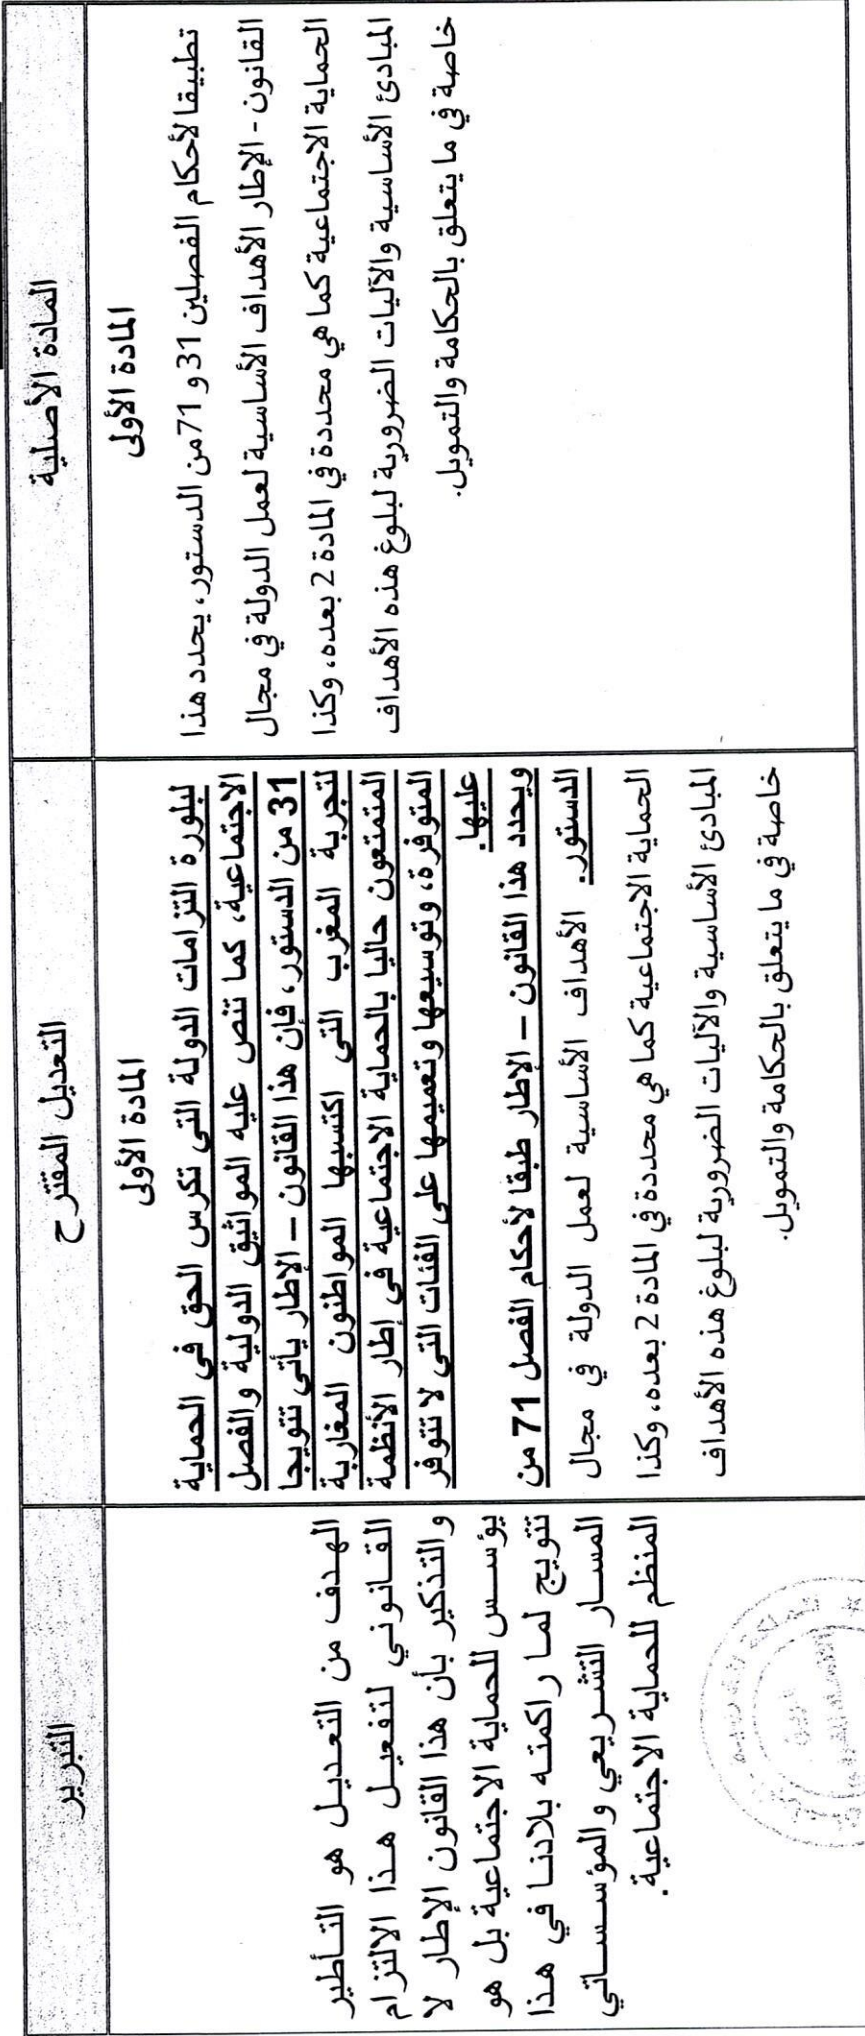 المادة الأصلية
المادة الأولى
تطبيقا لأحكام الفصلين 31 و 71 من الدستور، يحدد هذا
القانون - الإطار الأهداف الأساسية لعمل الدولة في مجال
الحماية الاجتماعية كما هي محددة في المادة 2 بعده، وكذا
المبادئ الأساسية والآليات الضرورية لبلوغ هذه الأهداف
خاصة في ما يتعلق بالحكامة والتمويل.
التعديل المقترح
المادة الأولى
لبلورة التزامات الدولة التي تكرس الحق في الحماية
الاجتماعية، كما تنص عليه المواثيق الدولية والفصل
31 من الدستور، فإن هذا القانون – الإطار يأتي تتويجا
لتجربة المغرب التي اكتسبها المواطنون المغاربة
المتمتعون حاليا بالحماية الاجتماعية في إطار الأنظمة
المتوفرة، وتوسيعها وتعميمها على الفئات التي لا تتوفر
عليها.
ويحدد هذا القانون – الإطار طبقا لأحكام الفصل 71 من
الدستور. الأهداف الأساسية لعمل الدولة في مجال
الحماية الاجتماعية كما هي محددة في المادة 2 بعده، وكذا
المبادئ الأساسية والآليات الضرورية لبلوغ هذه الأهداف
خاصة في ما يتعلق بالحكامة والتمويل.
التبرير
الهدف من التعديل هو التأطير
القانوني لتفعيل هذا الالتزام
والتذكير بأن هذا القانون الإطار لا
يؤسس للحماية الاجتماعية بل هو
تتويج لما راكمته بلادنا في هذا
المسار التشريعي والمؤسساتي
المنظم للحماية الاجتماعية.